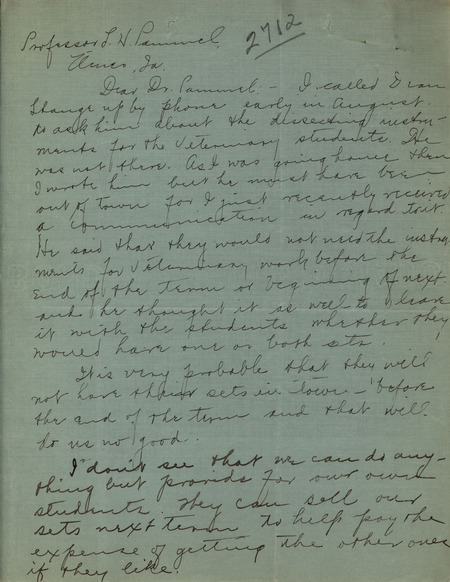 2712
Professor L. H. Pammel,
Ames, Ia.
Dear Dr. Pammel:- I called Evan
Stange up by phone early in August
to ask him about the dissecting instru-
ments for the Veterinary students. He
was not there. As I was going home then
I wrote him but he must have been
out of town for I just recently received
a communication in regard to it.
He said that they would not need the instru
ments for Veterinary work before the
end of the term or beginning of next
and he thought it as well to leave
it with the students whether they
would have one or both sets.
It is very probable that they will
not have their sets in town - before
the end of the term and that will
do us no good.
I don't see that we can do any-
thing but provide for our own
students. They can sell our
sets next term to help pay the
expense of getting the other ones
if they like.